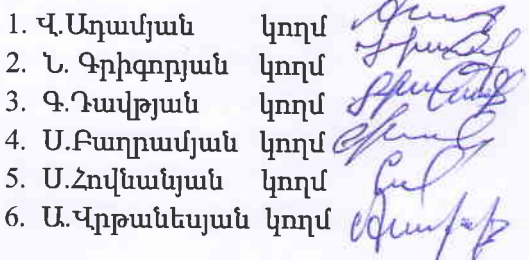 1. Վ.Ադամյան կողմ
2. Ն. Գրիգորյան կողմ
3. Գ.Դավթյան կողմ
4. Ս.Բաղրամյան կողմ
5. Ս.Հովնանյան կողմ
6. Ա.Վրթանեսյան կողմ